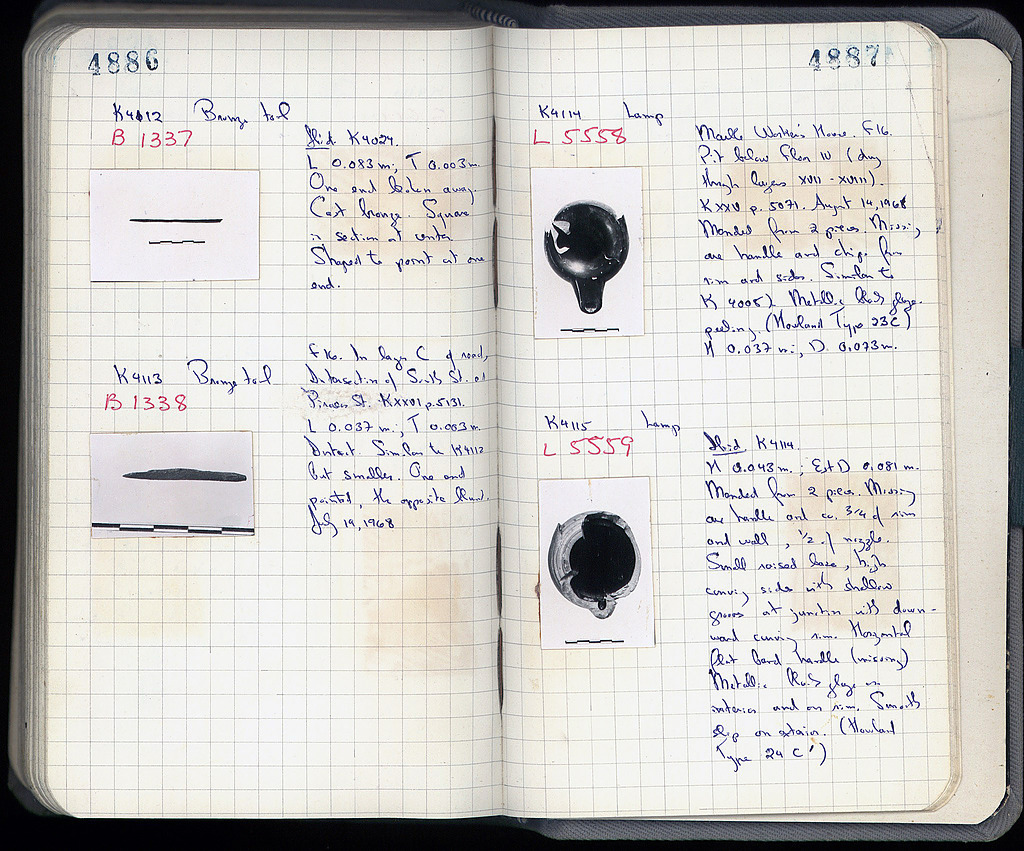 4886
K4112 Bronze tool
B 1337
Ibid. K4024.
L 0.083 m; T 0.003 m.
One end broken away.
Cast bronze. Square
in section at center.
Shaped to point at one
end.
K4113 Bronze tool
B 1338
F16. In layer C of road,
Intersection of South St. and
Piraeus St. KXXVI p.5131.
L 0.037 m.; T 0.003 m.
Intact. Similar to K4112
but smaller. One end
pointed, the opposite blunt.
July 19, 1968
4887
K4114 Lamp
L 5558
Marble Worker's House. F16.
Pit below Floor IV (dug
through layers XVII - XVIII).
KXXV p. 5071. August 14, 1968
Mended from 2 pieces. Missing
are handle and chips from
rim and sides. Similar to
K 4005). Metallic black glaze
peeling. (Howland Type 23C)
H 0.037 m.; D. 0.073 m.
K4115 Lamp
L 5559
Ibid. K4114.
H 0.043 m.; Est D 0.081 m.
Mended from 2 pieces. Missing
are handle and ca. 3/4 of rim
and wall, 1/2 of nozzle.
Small raised base, high
curving sides with shallow
groove at junction with down-
ward curving rim. Horizontal
flat band handle (missing)
Metallic black glaze on
interior and on rim. Smooth
slip on exterior. (Howland
Type 24 C')